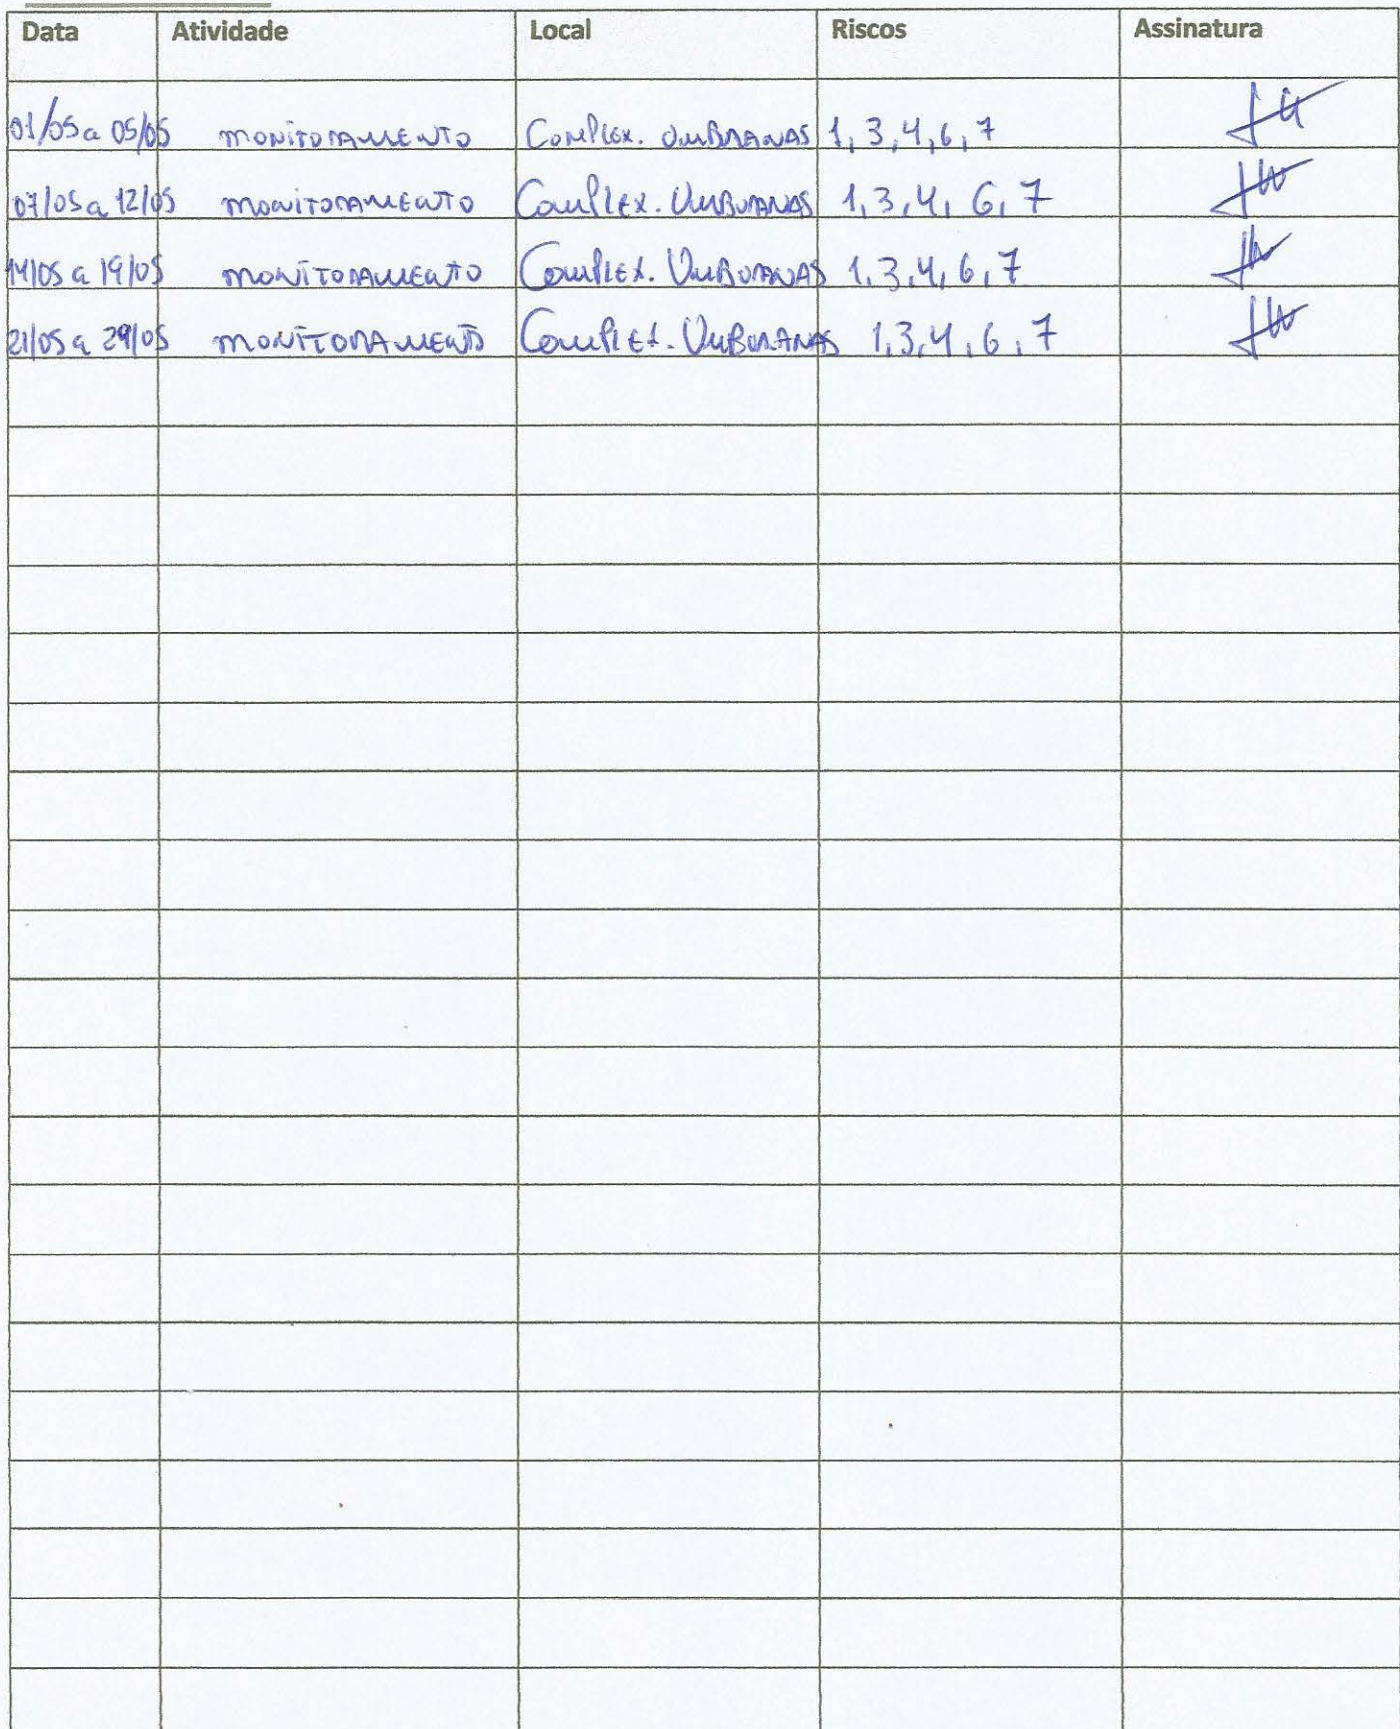 Data Atividade Local Riscos Assinatura
01/05 a 05/05 monitoramento Complex. Umburanas 1, 3, 4, 6, 7
07/05 a 12/05 monitoramento Complex. Umburanas 1, 3, 4, 6, 7
14/05 a 19/05 monitoramento Complex. Umburanas 1, 3, 4, 6, 7
21/05 a 29/05 monitoramento Complex. Umburanas 1, 3, 4, 6, 7